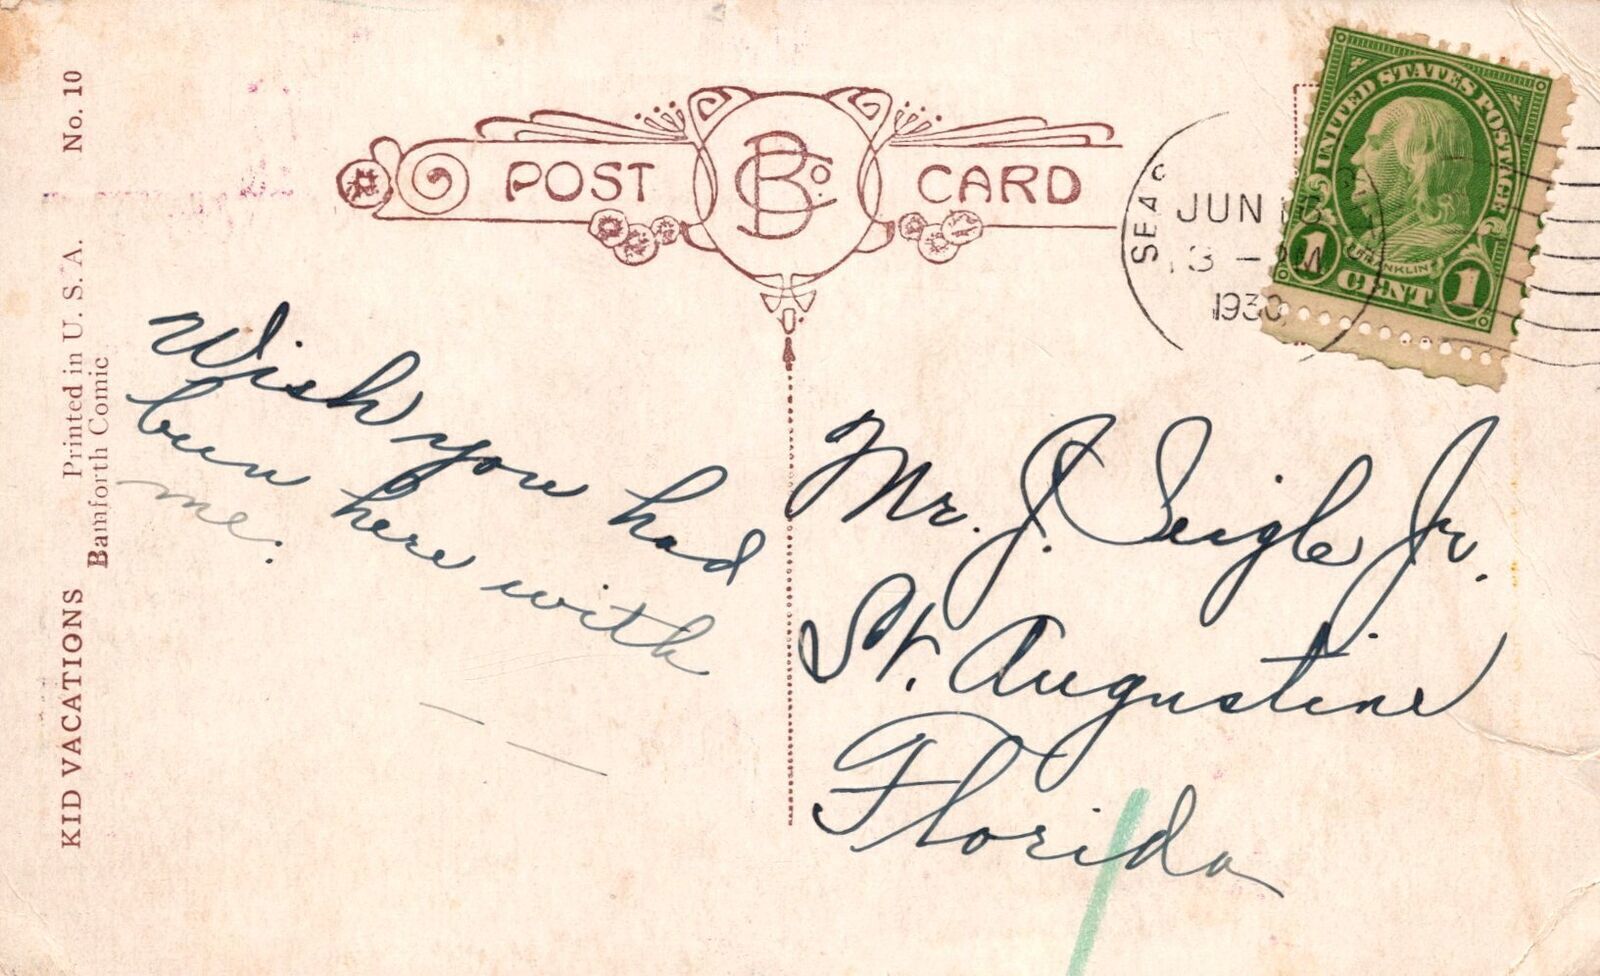 KID VACATIONS Printed in U. S. A. No. 10
Bamforth Comic
POST CARD
B Co.
JUN
1930
UNITED STATES POSTAGE
FRANKLIN
1 CENT 1
Wish you had
been here with
me.
Mr. J. Seigle Jr.
St. Augustine
Florida